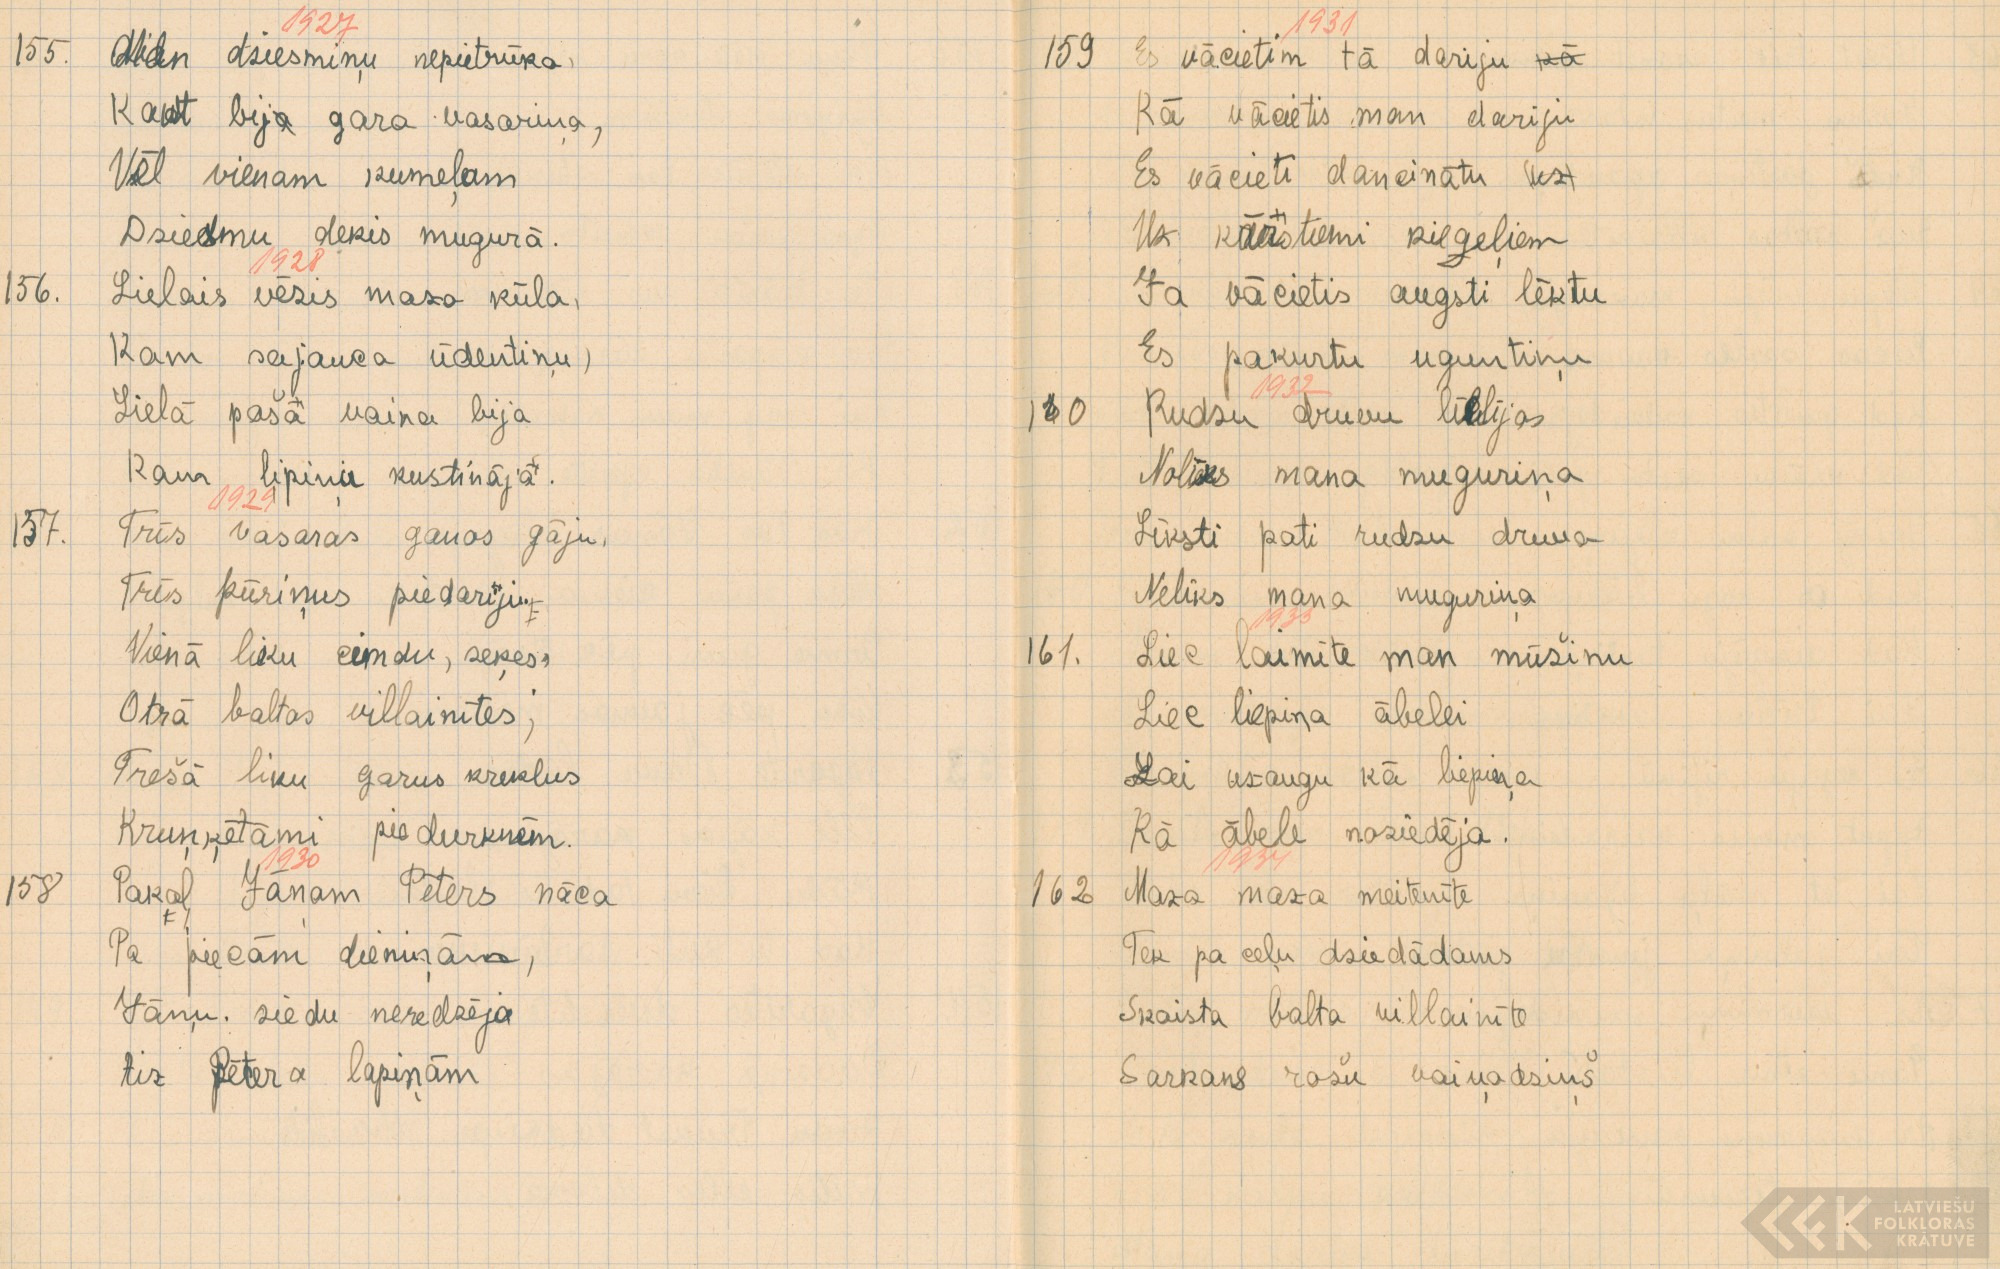 1927
155. Man dziesmiņu nepietrūka,
Kaut bija gara vasariņa,
Vēl vienam kumeļam
Dziesmu deķis mugurā.
1928
156. Lielais vēzis mazo kūla,
Kam sajauca ūdentiņu,
Lielā pašā vaina bija
Kam ļipiņu kustināja.
1929
157. Trīs vasaras ganos gāju,
Trīs pūriņus piedariju
Vienā liku cimdu, zeķes,
Otrā baltas villainītes;
Trešā liku garus kreklus
Kruņķētāmi piedurknēm.
1930
158 Pakaļ Jāņam Pēters nāca
Pa piecām dieniņām,
Jāņu. ziedu neredzēja
tiz Pētera lapiņām
1931
159 Es vācietim tā dariju kā
Kā vācietis man dariju
Es vācieti dancinātu (uz)
Uz kārstiemi ķieģeļiem
Ja vācietis augsti lēktu
Es pakurtu uguntiņu
1932
160 Rudzu druvu līdzījos
Nolīks mana muguriņa
Līksti pati rudzu druva
Nelīks mana muguriņa
1933
161. Liec laimīte man mūšinu
Liec liepiņa ābelei
Lai uzaugu kā liepiņa
Kā ābele noziedēja.
1934
162 Maza maza meitenīte
Tek pa ceļu dziedādams
Skaista balta villainīte
Sarkans rožu vaiņadziņš
LATVIEŠU
FOLKLORAS
KRĀTUVE